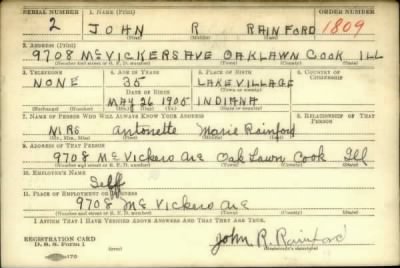 SERIAL NUMBER 1. NAME (Print) ORDER NUMBER
2 JOHN R RAINFORD 1809
(First) (Middle) (Last)
2. ADDRESS (Print)
9708 McVICKERS AVE OAKLAWN COOK ILL
(Number and street or R. F. D. number) (Town) (County) (State)
3. TELEPHONE 4. AGE IN YEARS 5. PLACE OF BIRTH 6. COUNTRY OF CITIZENSHIP
NONE 35 LAKE VILLAGE
DATE OF BIRTH (Town or county)
MAY 26 1905 INDIANA
(Exchange) (Number) (Mo.) (Day) (Yr.) (State or country)
7. NAME OF PERSON WHO WILL ALWAYS KNOW YOUR ADDRESS 8. RELATIONSHIP OF THAT PERSON
MRS Antonette Marie Rainford
(Mr., Mrs., Miss) (First) (Middle) (Last)
9. ADDRESS OF THAT PERSON
9708 Mc Vickers Ave Oak Lawn Cook Ill
(Number and street or R. F. D. number) (Town) (County) (State)
10. EMPLOYER'S NAME
Self
11. PLACE OF EMPLOYMENT OR BUSINESS
9708 Mc Vickers Ave
(Number and street or R. F. D. number) (Town) (County) (State)
I AFFIRM THAT I HAVE VERIFIED ABOVE ANSWERS AND THAT THEY ARE TRUE.
REGISTRATION CARD
D. S. S. Form 1 John R. Rainford
(Registrant's signature)